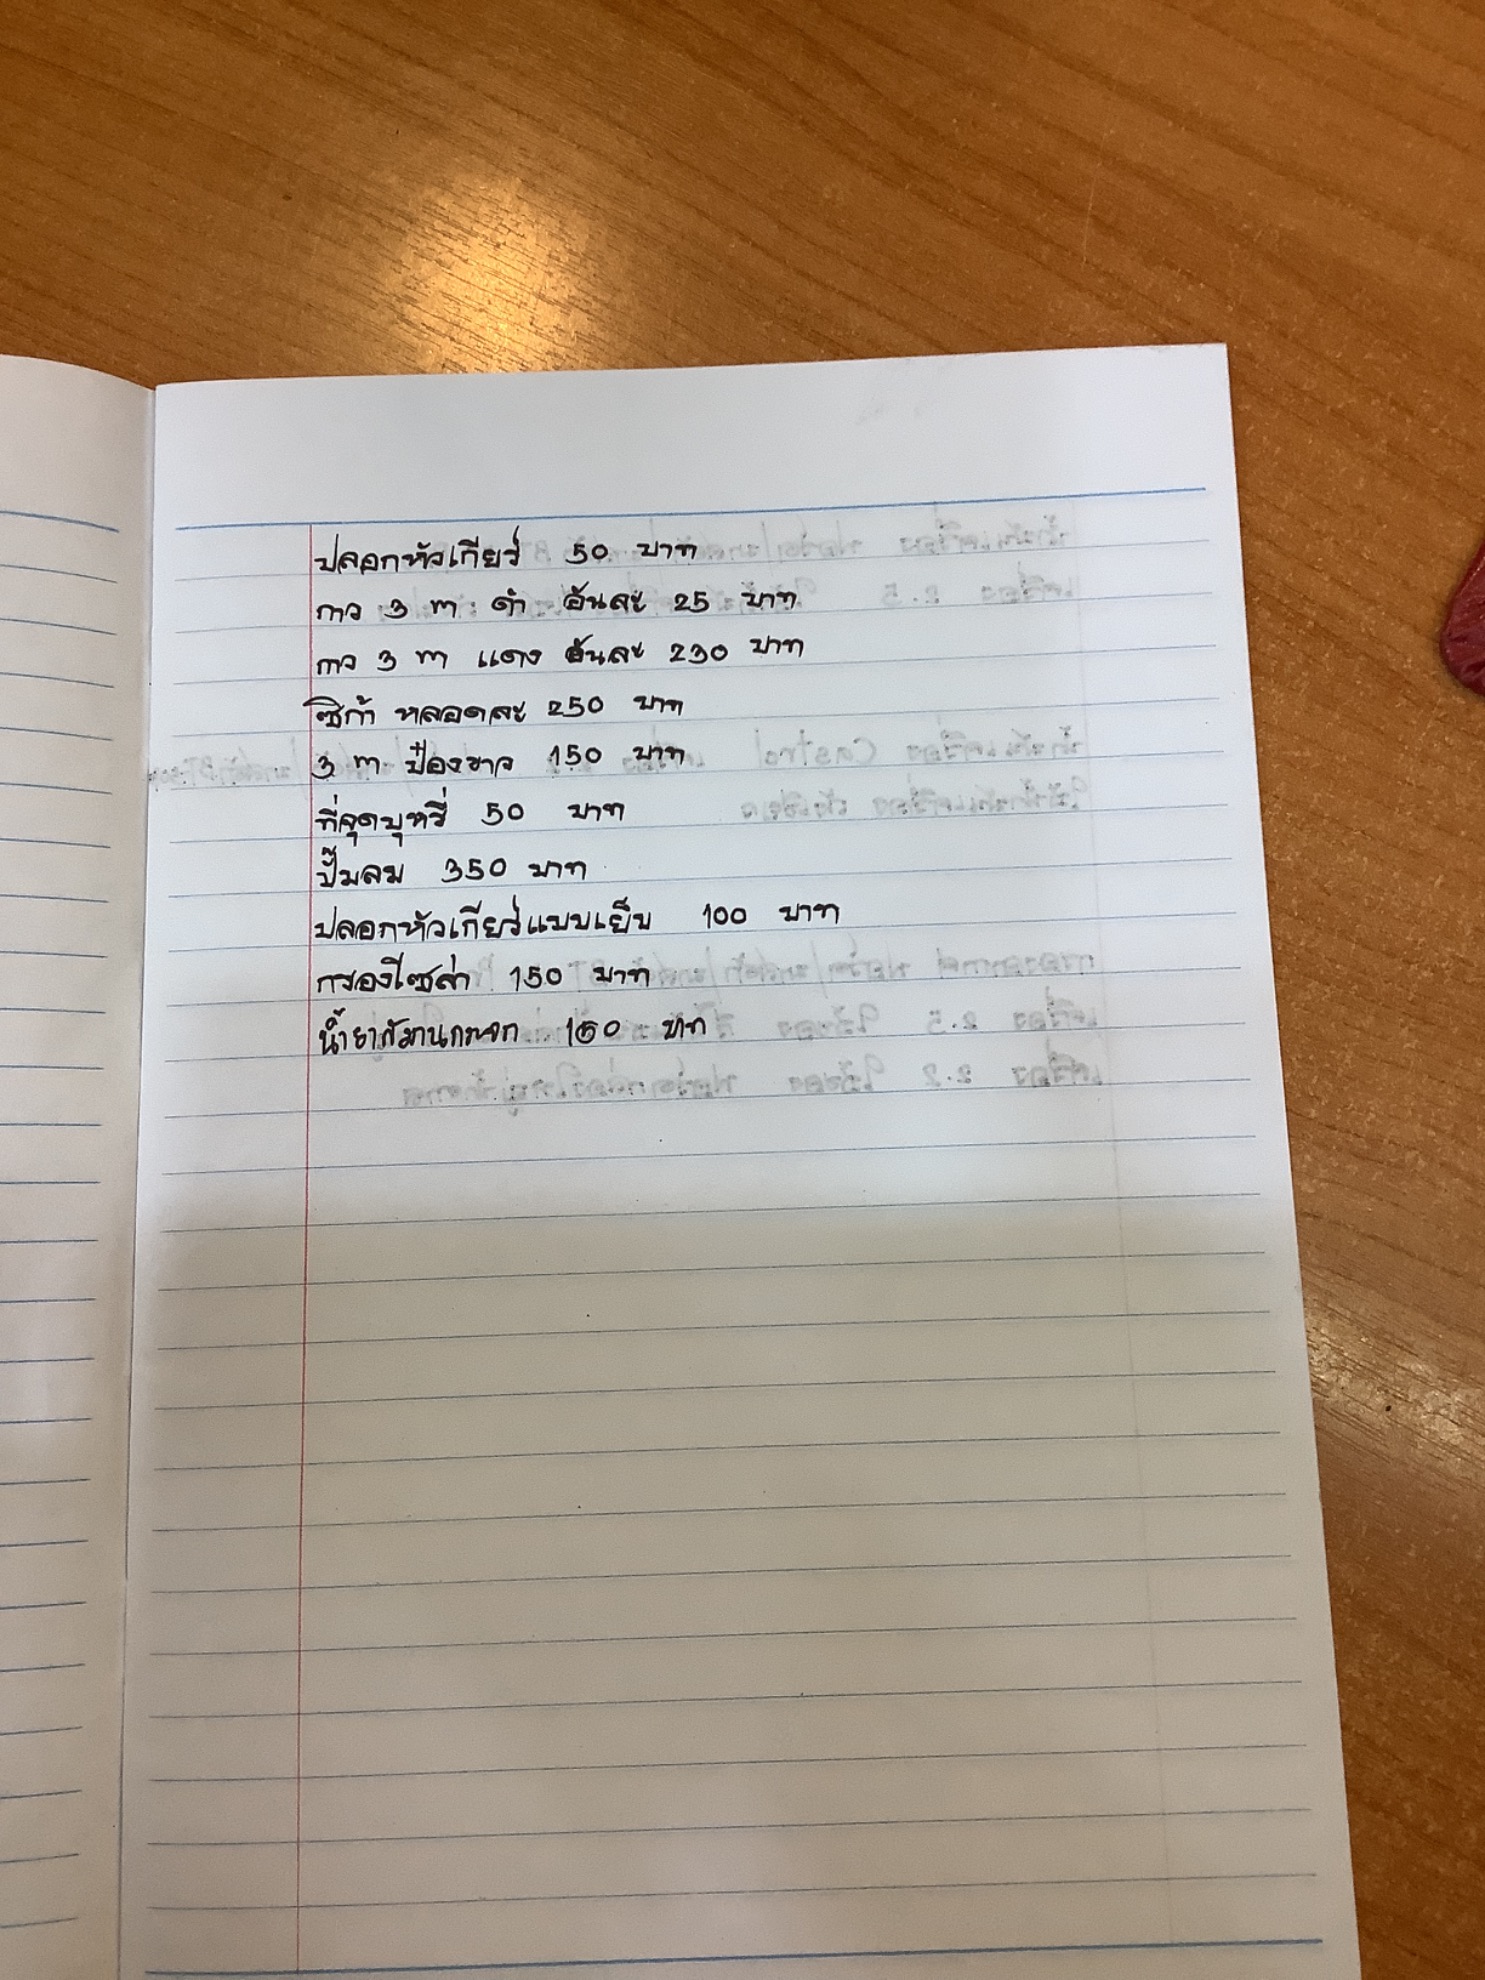 ปลอกหัวเกียร์ 50 บาท
กาว 3 m ดำ อันละ 25 บาท
กาว 3 m แดง อันละ 230 บาท
ซิก้า หลอดละ 250 บาท
3 m ป๋องขาว 150 บาท
ที่จุดบุหรี่ 50 บาท
ปั๊มลม 350 บาท
ปลอกหัวเกียร์แบบเย็บ 100 บาท
กรองโซล่า 150 บาท
150 บาท